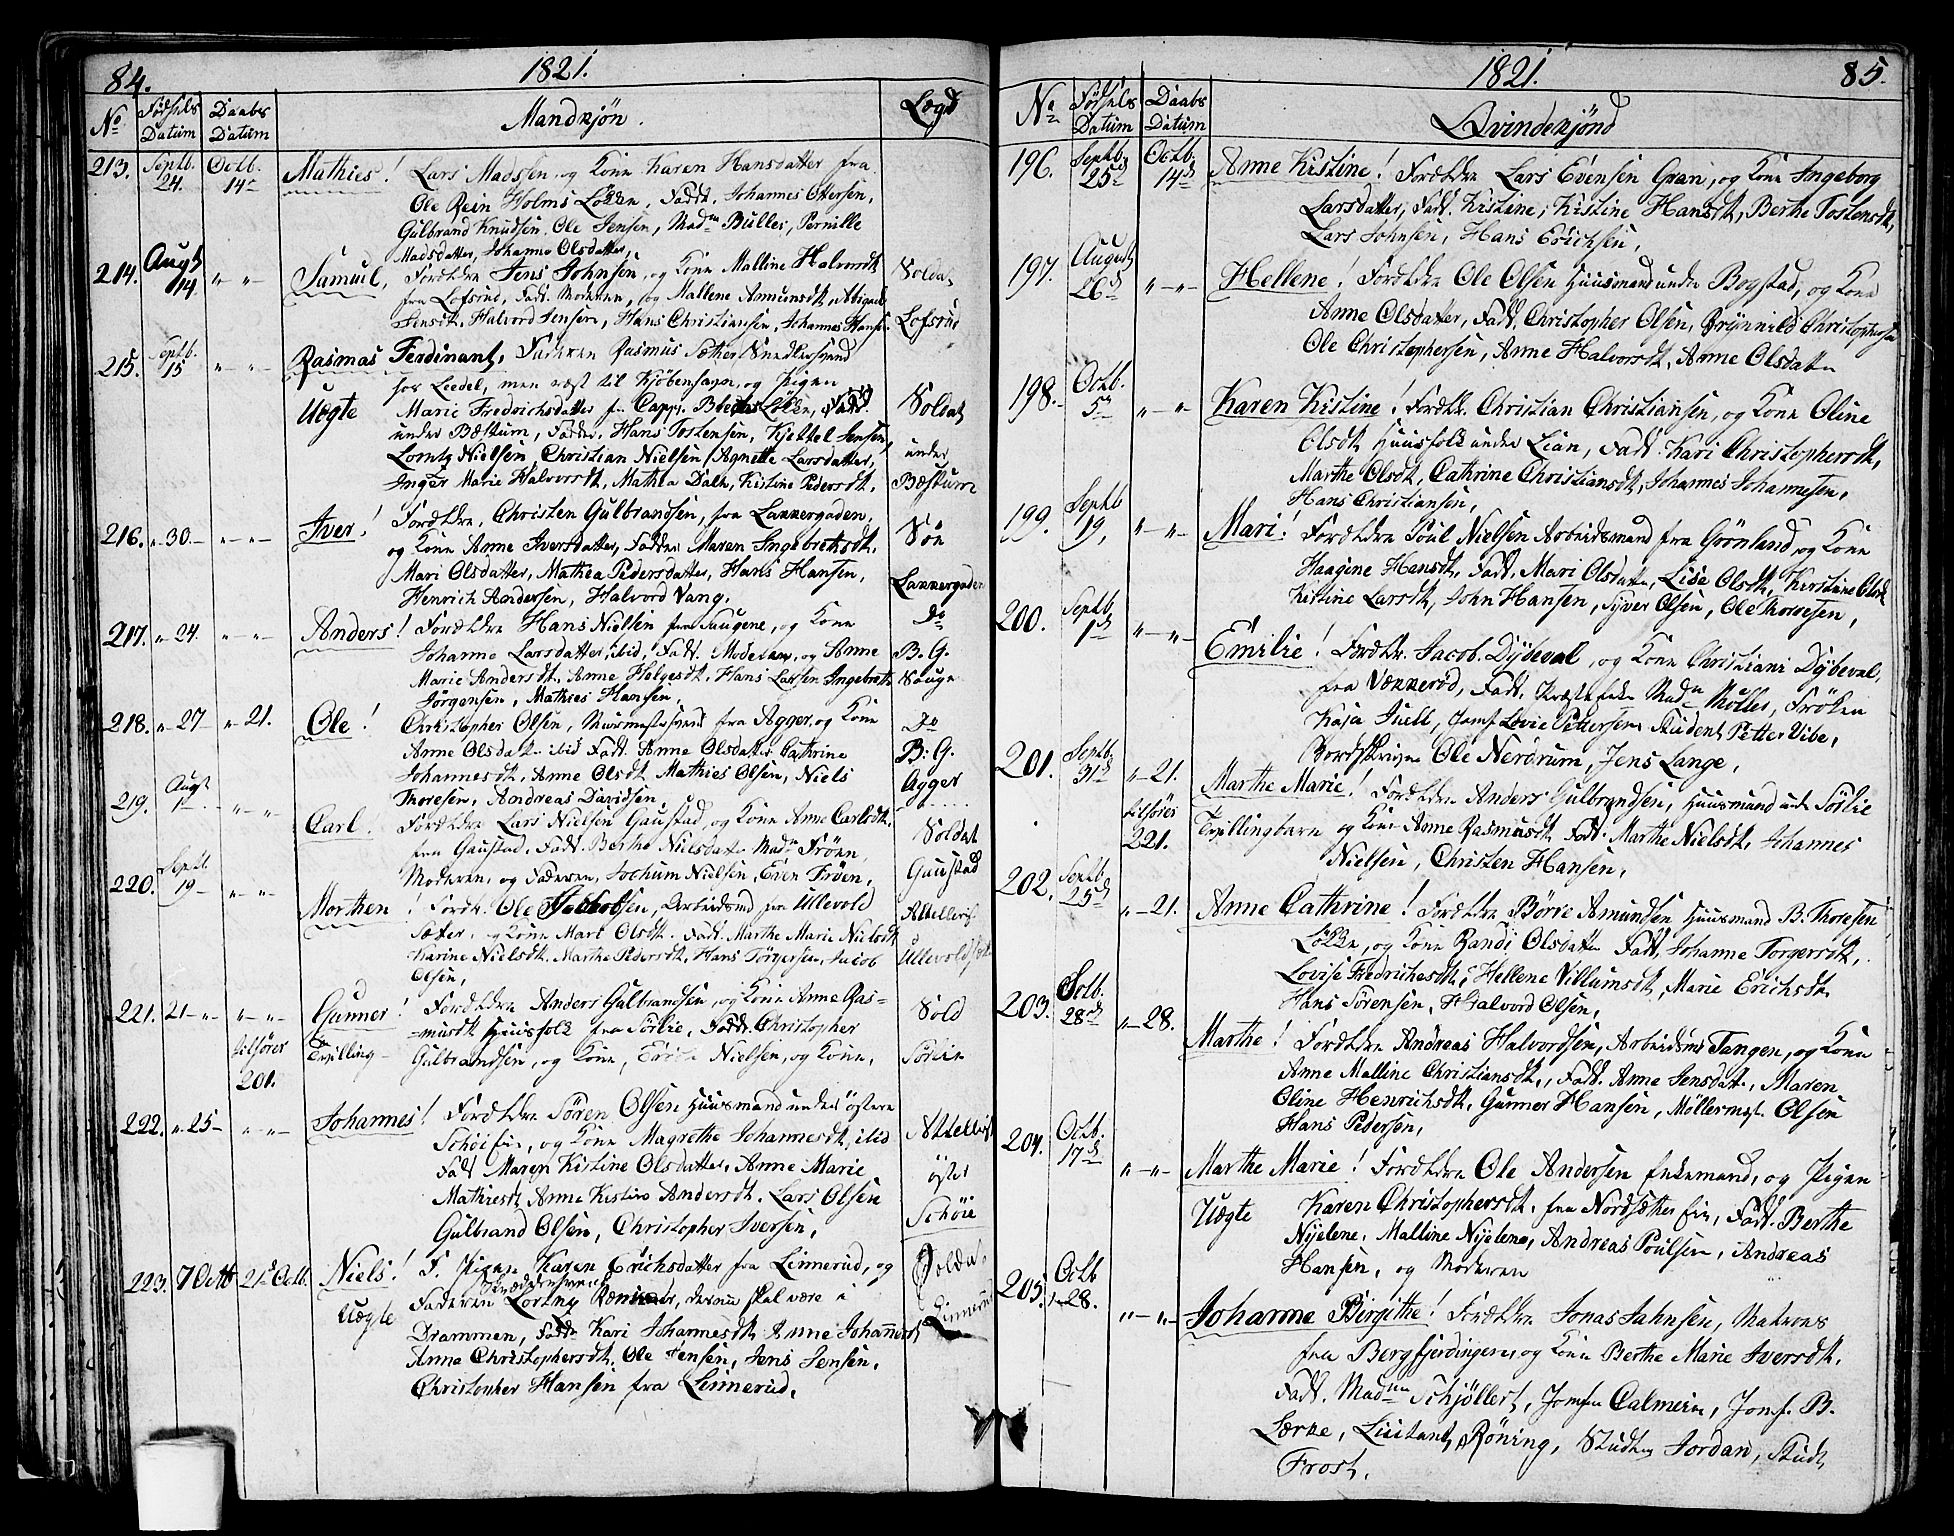 84. 1821.
No Fødsels Datum Daabs Datum Mandkjøn. Lægd
213. Septb. 24. Octb. 14de Mathies! Lars Madsen, og Kone Karen Hansdatter fra
Ole Rein Holms Løkken, Fadd. Johannes Ottersen,
Gulbrand Knudsen, Ole Jensen, Madm Bulles, Pernille
Madsdatter, Johanne Olsdatter,
214. Augt 14. " " Samuel, Forældre Jens Johnsen, og Kone Malline Halvorsdt Soldat
fra Lofsrud, Fadd. Moderen, og Mallene Amunsdt, Abigael Lofsrud
Jensdt, Halvord Jensen, Hans Christiansen, Johannes Hansen
215. Septb. 15 " " Rasmus Ferdinant, Faderen Rasmus Sæther Snedkersvend
for Leedel, men reist til Kjøbenhavn, og Pigen
Uægte Marie Fredrichsdatter fr Capp. Løkken, Fadd. Soldat
under Bæstum, Fadder, Hans Tostensen, Kjettel Jensen, under
Lorntz Nielsen, Christian Nielsen, Agnette Larsdatter, Bæstum
Inger Marie Halvorsdt, Mathea Dalen, Kistine Pedersdt.
216. " 30 " " Iver! Forældre, Christen Gulbrandsen, fra Lakkergaden, Søe
og Kone Anne Iversdatter, Fadder Maren Ingebretsdt.
Mari Olsdatter, Mathea Pedersdatter, Hans Hansen, Lakkergaden
Henrich Andersen, Halvord Vang.
217. " 24. " " Anders! Forældre Hans Nielsen fra Saugene, og Kone Do
Johanne Larsdatter, ibid, Fadd. Moderen, og Anne B. G.
Marie Andersdt, Anne Helgesdt, Hans Larsen Ingebret Sauge
Jørgensen, Mathies Hansen
218. " 27 " 21. Ole! Christopher Olsen, Muurmestersvend fra Agger, og Kone Do
Anne Olsdatt. ibid Fadd. Anne Olsdatter Cathrine B. G.
Johannesdt, Anne Olsdt, Mathies Olsen, Niels Agger
Thoresen, Andreas Davidsen
219. Augt 1 " " Carl! Forældre Lars Nielsen Gaustad, og Kone Anne Carlsdt. Soldat
fra Gaustad. Fadd. Berthe Nielsdatt Madm Frøen, Gaustad
Moderen, og Faderen, Jochum Nielsen, Even Frøen,
220. Septbr 19 " " Morthen! Foræld. Ole Jacobsen, Arbeidsmd fra Ullevold Attelleri
Sæter, og Kone Mari Olsdt. Fadd. Marthe Marie Nielsdt Ullevoldsæt
Karine Nielsdt, Marthe Pedersdt, Hans Torgersen, Jacob
Olsen,
221. 21 " " " Gunner! Forældre Anders Gulbrandsen, og Kone Anne Ras- Sold
musdt Huusfolk fra Sørlie, Fadd. Christopher
tilhører 201. Tvilling Gulbrandsen, og Kone, Erich Nielsen, og Kone, Sørlie
222. " 25 " " Johannes! Forældre Søren Olsen Huusmand under østere Attelleri
Schøien, og Kone Magrethe Johannesdt, ibid
Fadd Maren Kistine Olsdatter, Anne Marie øster
Mathiesdt, Anne Kistine Andersdt. Lars Olsen Schøie
Gulbrand Olsen, Christopher Iversen,
223. 7 Octb 21de Octb. Niels! F. Pigen Karen Erichsdatter fra Linnerud, og Soldat
Uægte Faderen Skræddersvend Lorentz, denne skal være i Linnerud
Drammen, Fadd. Kari Johannesdt Anne Johannesdt
Anna Christophersdt, Ole Jensen, Jens Jensen,
Christopher Hansen fra Linnerud,
1821. 85.
No Fødsels Datum Daabs Datum Qvindekjønd
196. Septb. 25de Octb. 14de Anne Kistine! Forældre Lars Evensen Gran, og Kone Ingeborg
Larsdatter, Fadd. Kistine, Kistine Hansdt, Berthe Tostensdt,
Lars Johnsen, Hans Erichsen,
197. August 26de " " Hellene! Forældre Ole Olsen Huusmand under Bogstad, og Kone
Anne Olsdatter, Fadd. Christopher Olsen, Brynnild Christophersen
Ole Christophersen, Anne Halvorsdt, Anne Olsdatter
198. Octb. 5te " " Karen Kistine! Foræld. Christian Christiansen, og Kone Oline
Olsdt Huusfolk under Lian, Fadd. Kari Christophersdt,
Marthe Olsdt, Cathrine Christiansdt, Johannes Johannesen,
Hans Christiansen,
199. Septb 19, " " Mari! Forældre Poul Nielsen Arbeidsmand fra Grønland, og Kone
Haagine Hansdt, Fadd. Mari Olsdatter, Lise Olsdt, Kirstine Olsdt
Kistine Larsdt, John Hansen, Syver Olsen, Ole Thoresen,
200. Septb 1de " " Emilie! Foræld. Jacob Dybeval, og Kone Christiani Dybeval,
fra Vækkerød, Fadd. Madm Møller, Frøken
Kaja Juell, Jomf. Lovie Pettersen Student Petter Vibe,
Ole Nerdrum, Jens Lange,
201. Septb. " 21. Marthe Marie! Forældre Anders Gulbrandsen, Huusmand und. Sørlie
tilhører 221. Tvillingbarn og Kone Anne Rasmusdt Fadd. Marthe Nielsdt, Johannes
Nielsen, Christen Hansen,
202. Septb. 25de " 21. Anne Cathrine! Forældre Børre Amundsen Huusmand B. Thoresen
Løkke, og Kone Randi Olsdatter Fadd. Johanne Torgersdt,
Lovise Fredrichsdt, Hellene Villumsdt, Marie Erichsdt.
Hans Sørensen, Halvord Olsen,
203. Sebtb. 28de " 28. Marthe! Forældre Andreas Halvordsen, Arbeidsmd Tangen, og Kone
Anne Malline Christiansdt., Fadd. Anne Jensdatt., Maren
Oline Henrichsdt, Gunner Hansen, Møllermest. Olsen
Hans Pedersen,
204. Octb. 17de " " Marthe Marie! Forældre Ole Andersen Enkemand, og Pigen
Uægte Karen Christophersdt. fra Nordsætter, Fadd. Berthe
Nyelene, Malline Nyelene, Andreas Poulsen, Andreas
Hansen, og Moderen
205. Octb 28. " " Johanne Birgithe! Forældre Jonas Jahnsen, Matros
fra Bergfjerdingen, og Kone Berthe Marie Iversdt.
Fadd. Madme Schjøllert, Jomfr Calmeier, Jomf. B.
Lærke, Lieutant Røning, Studten Jordan, Studt
Frost.